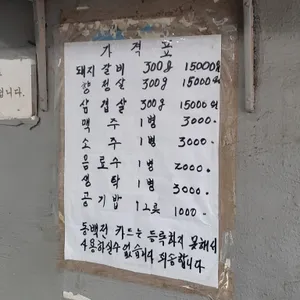 가격표
돼지갈비 300g 15000원
항정살 300g 15000원
삼겹살 300g 15000원
맥주 1병 3000.
소주 1병 3000.
음료수 1병 2000.
생탁 1병 3000.
공기밥 1그릇 1000-
동백전 카드는 등록하지 못해서
사용하실수 없습니다 죄송합니다
니다.